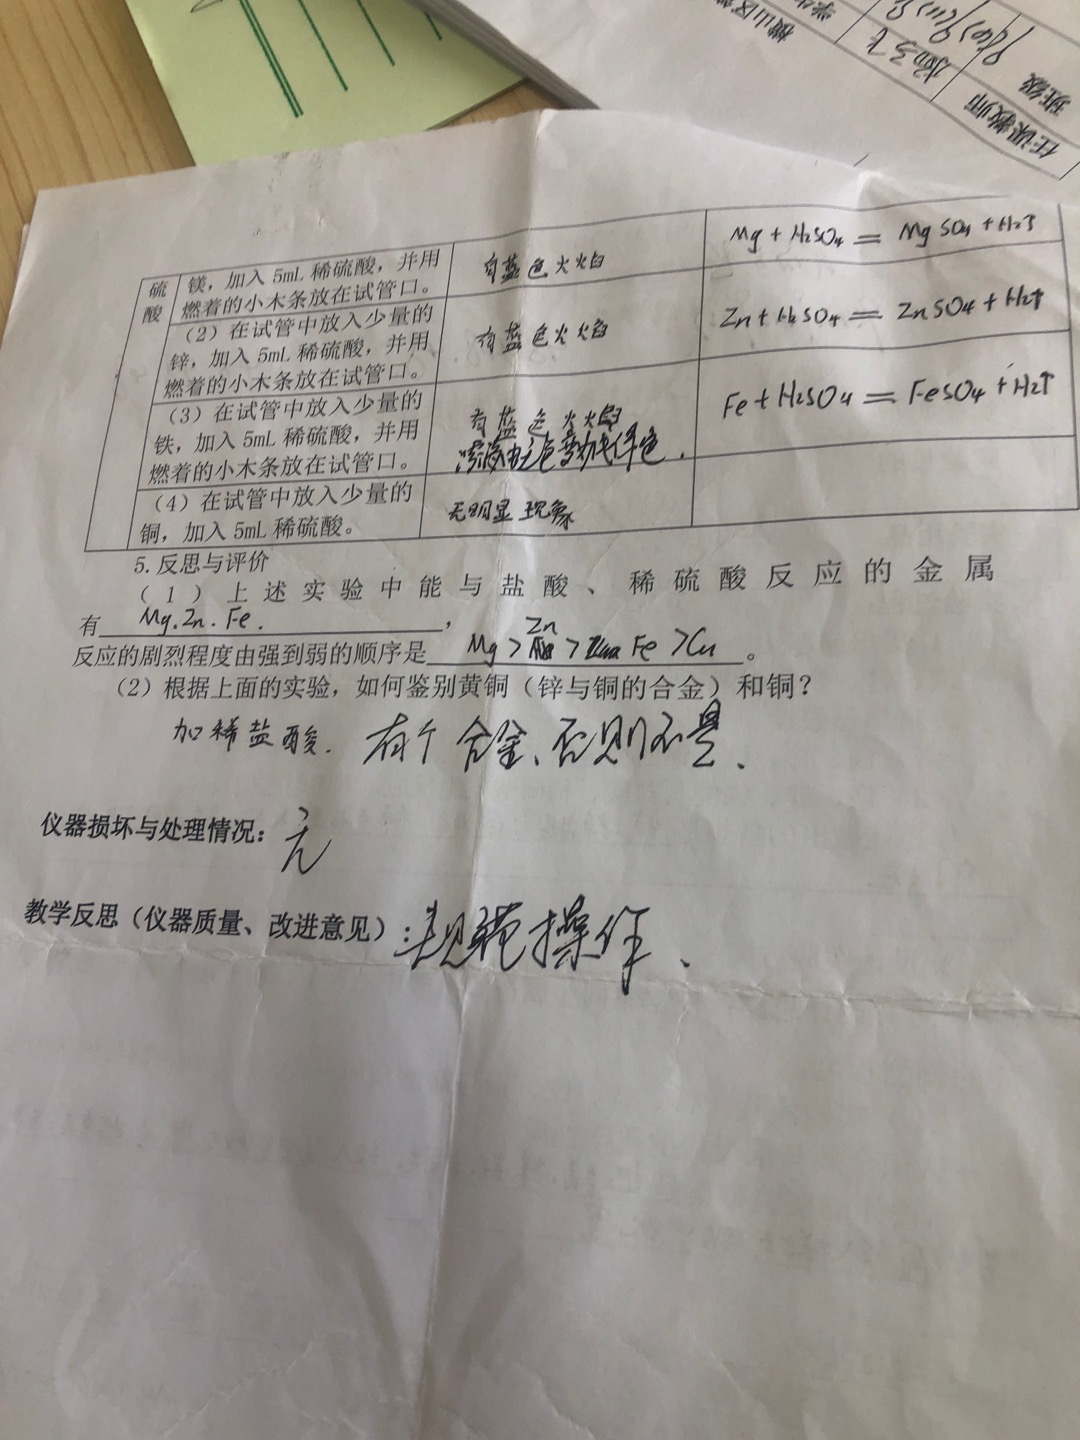 横山区
学生
班级
任课教师
硫酸
镁，加入 5mL 稀硫酸，并用
燃着的小木条放在试管口。
有蓝色火焰
Mg + H₂SO₄ = MgSO₄ + H₂↑
（2）在试管中放入少量的
锌，加入 5mL 稀硫酸，并用
燃着的小木条放在试管口。
有蓝色火焰
Zn + H₂SO₄ = ZnSO₄ + H₂↑
（3）在试管中放入少量的
铁，加入 5mL 稀硫酸，并用
燃着的小木条放在试管口。
有蓝色火焰
溶液由无色变为浅绿色.
Fe + H₂SO₄ = FeSO₄ + H₂↑
（4）在试管中放入少量的
铜，加入 5mL 稀硫酸。
无明显现象
5.反思与评价
（1）上述实验中能与盐酸、稀硫酸反应的金属
有 Mg. Zn. Fe. ，
反应的剧烈程度由强到弱的顺序是 Mg > Zn > Fe > Cu 。
（2）根据上面的实验，如何鉴别黄铜（锌与铜的合金）和铜？
加稀盐酸. 有个合金、否则不是.
仪器损坏与处理情况：无
教学反思（仪器质量、改进意见）：规范操作.